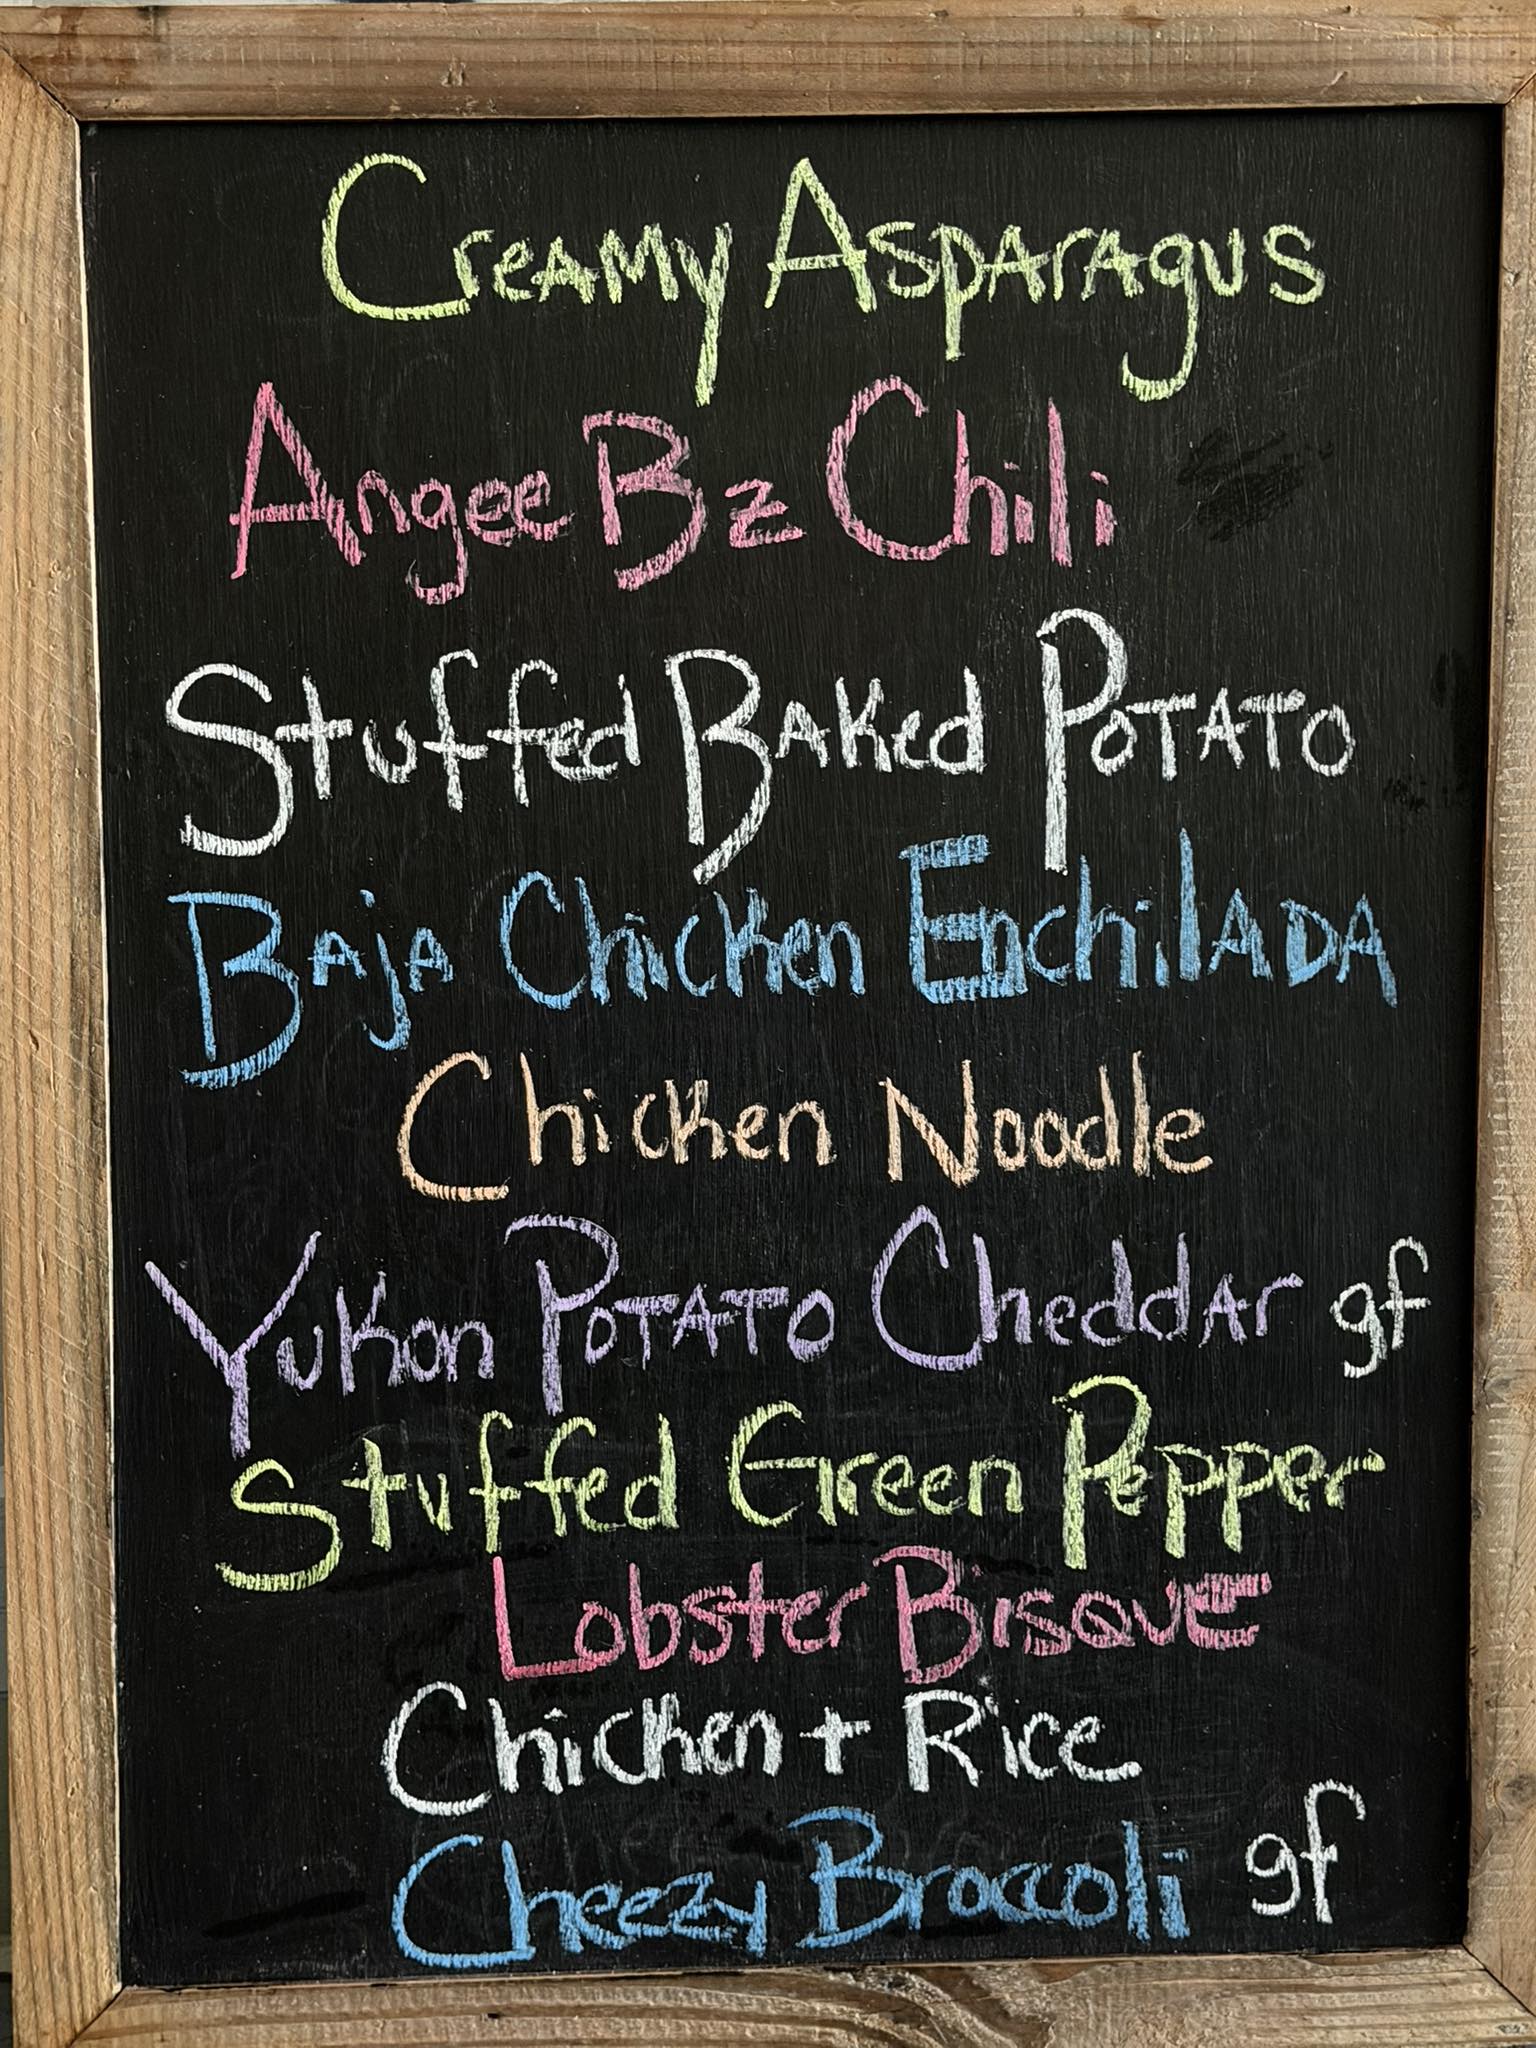 Creamy Asparagus
Angee Bz Chili
Stuffed Baked Potato
Baja Chicken Enchilada
Chicken Noodle
Yukon Potato Cheddar gf
Stuffed Green Pepper
Lobster Bisque
Chicken + Rice
Cheezy Broccoli gf